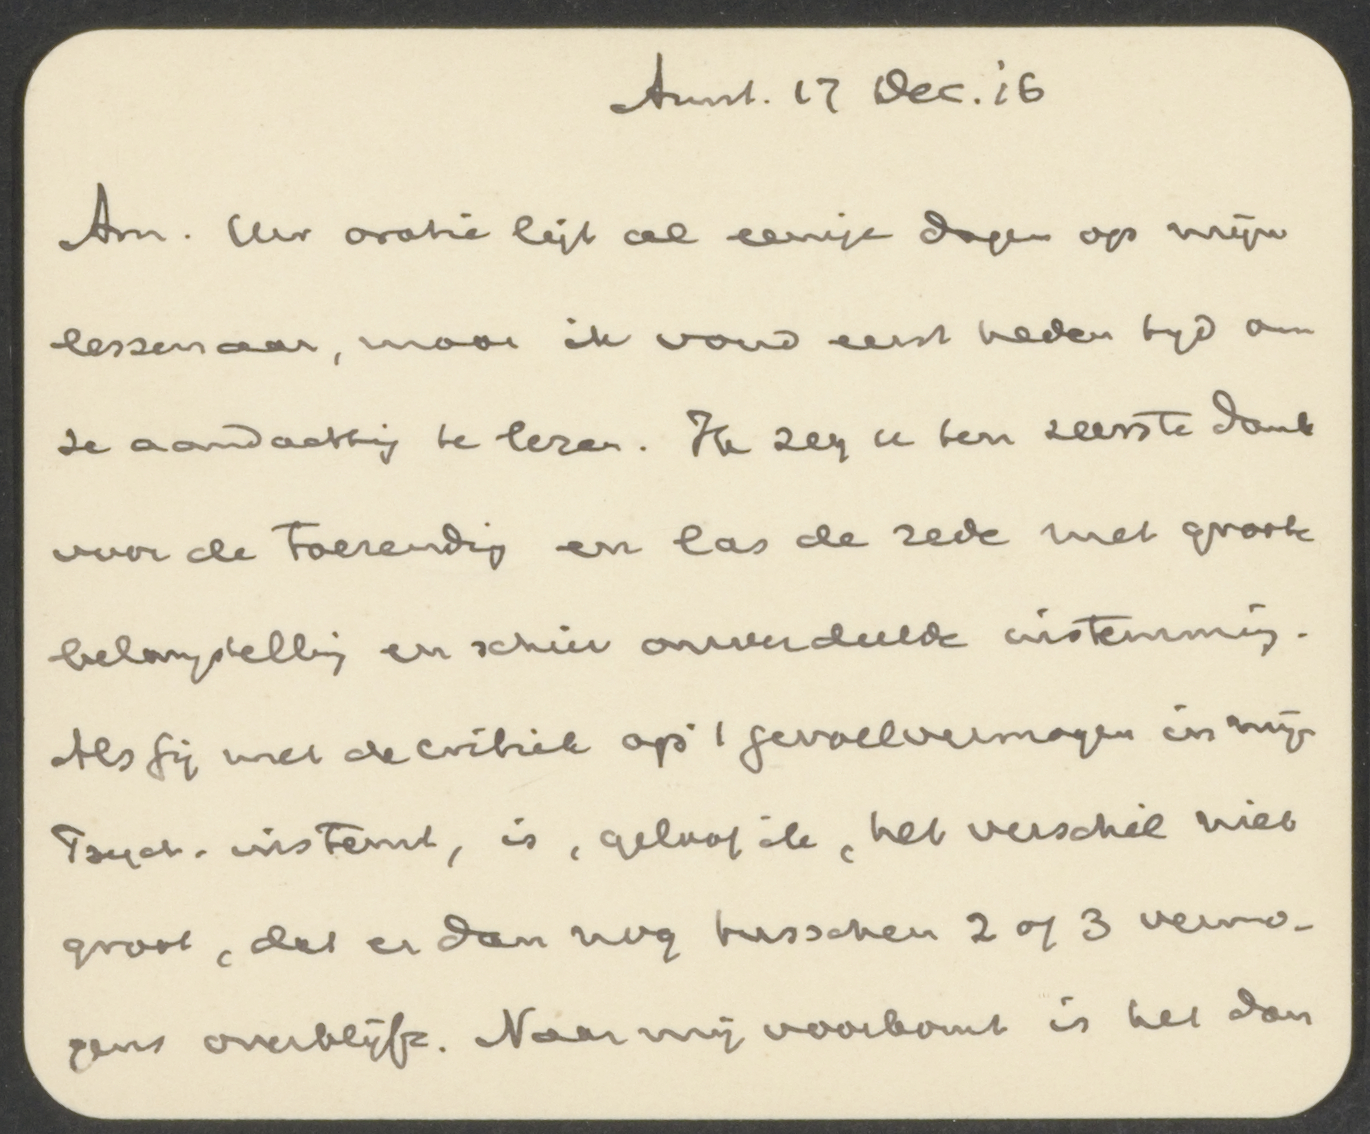 Amst. 17 Dec. '16
Am. Uw oratie ligt al eenige dagen op mijn
lessenaar, maar ik vond eerst heden tijd om
ze aandachtig te lezen. Ik zeg u ten zeerste dank
voor de toezending en las de rede met groote
belangstelling en schier onverdeelde instemming.
Als gij met de critiek op 't gevoelvermogen in mijn
Psych. instemt, is, geloof ik, het verschil niet
groot, dat er dan nog tusschen 2 of 3 vermo-
gens overblijft. Naar mij voorkomt is het dan